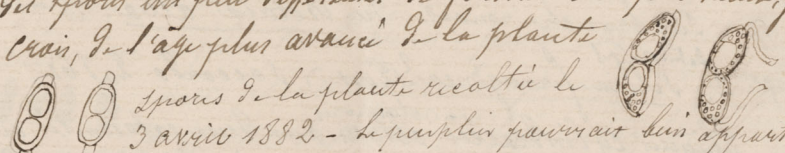 spores un peu
crois, de l'age plus avancé de la plante
spores de la plante recoltée le
3 avril 1882 - Le peuplier pourrait bien appart